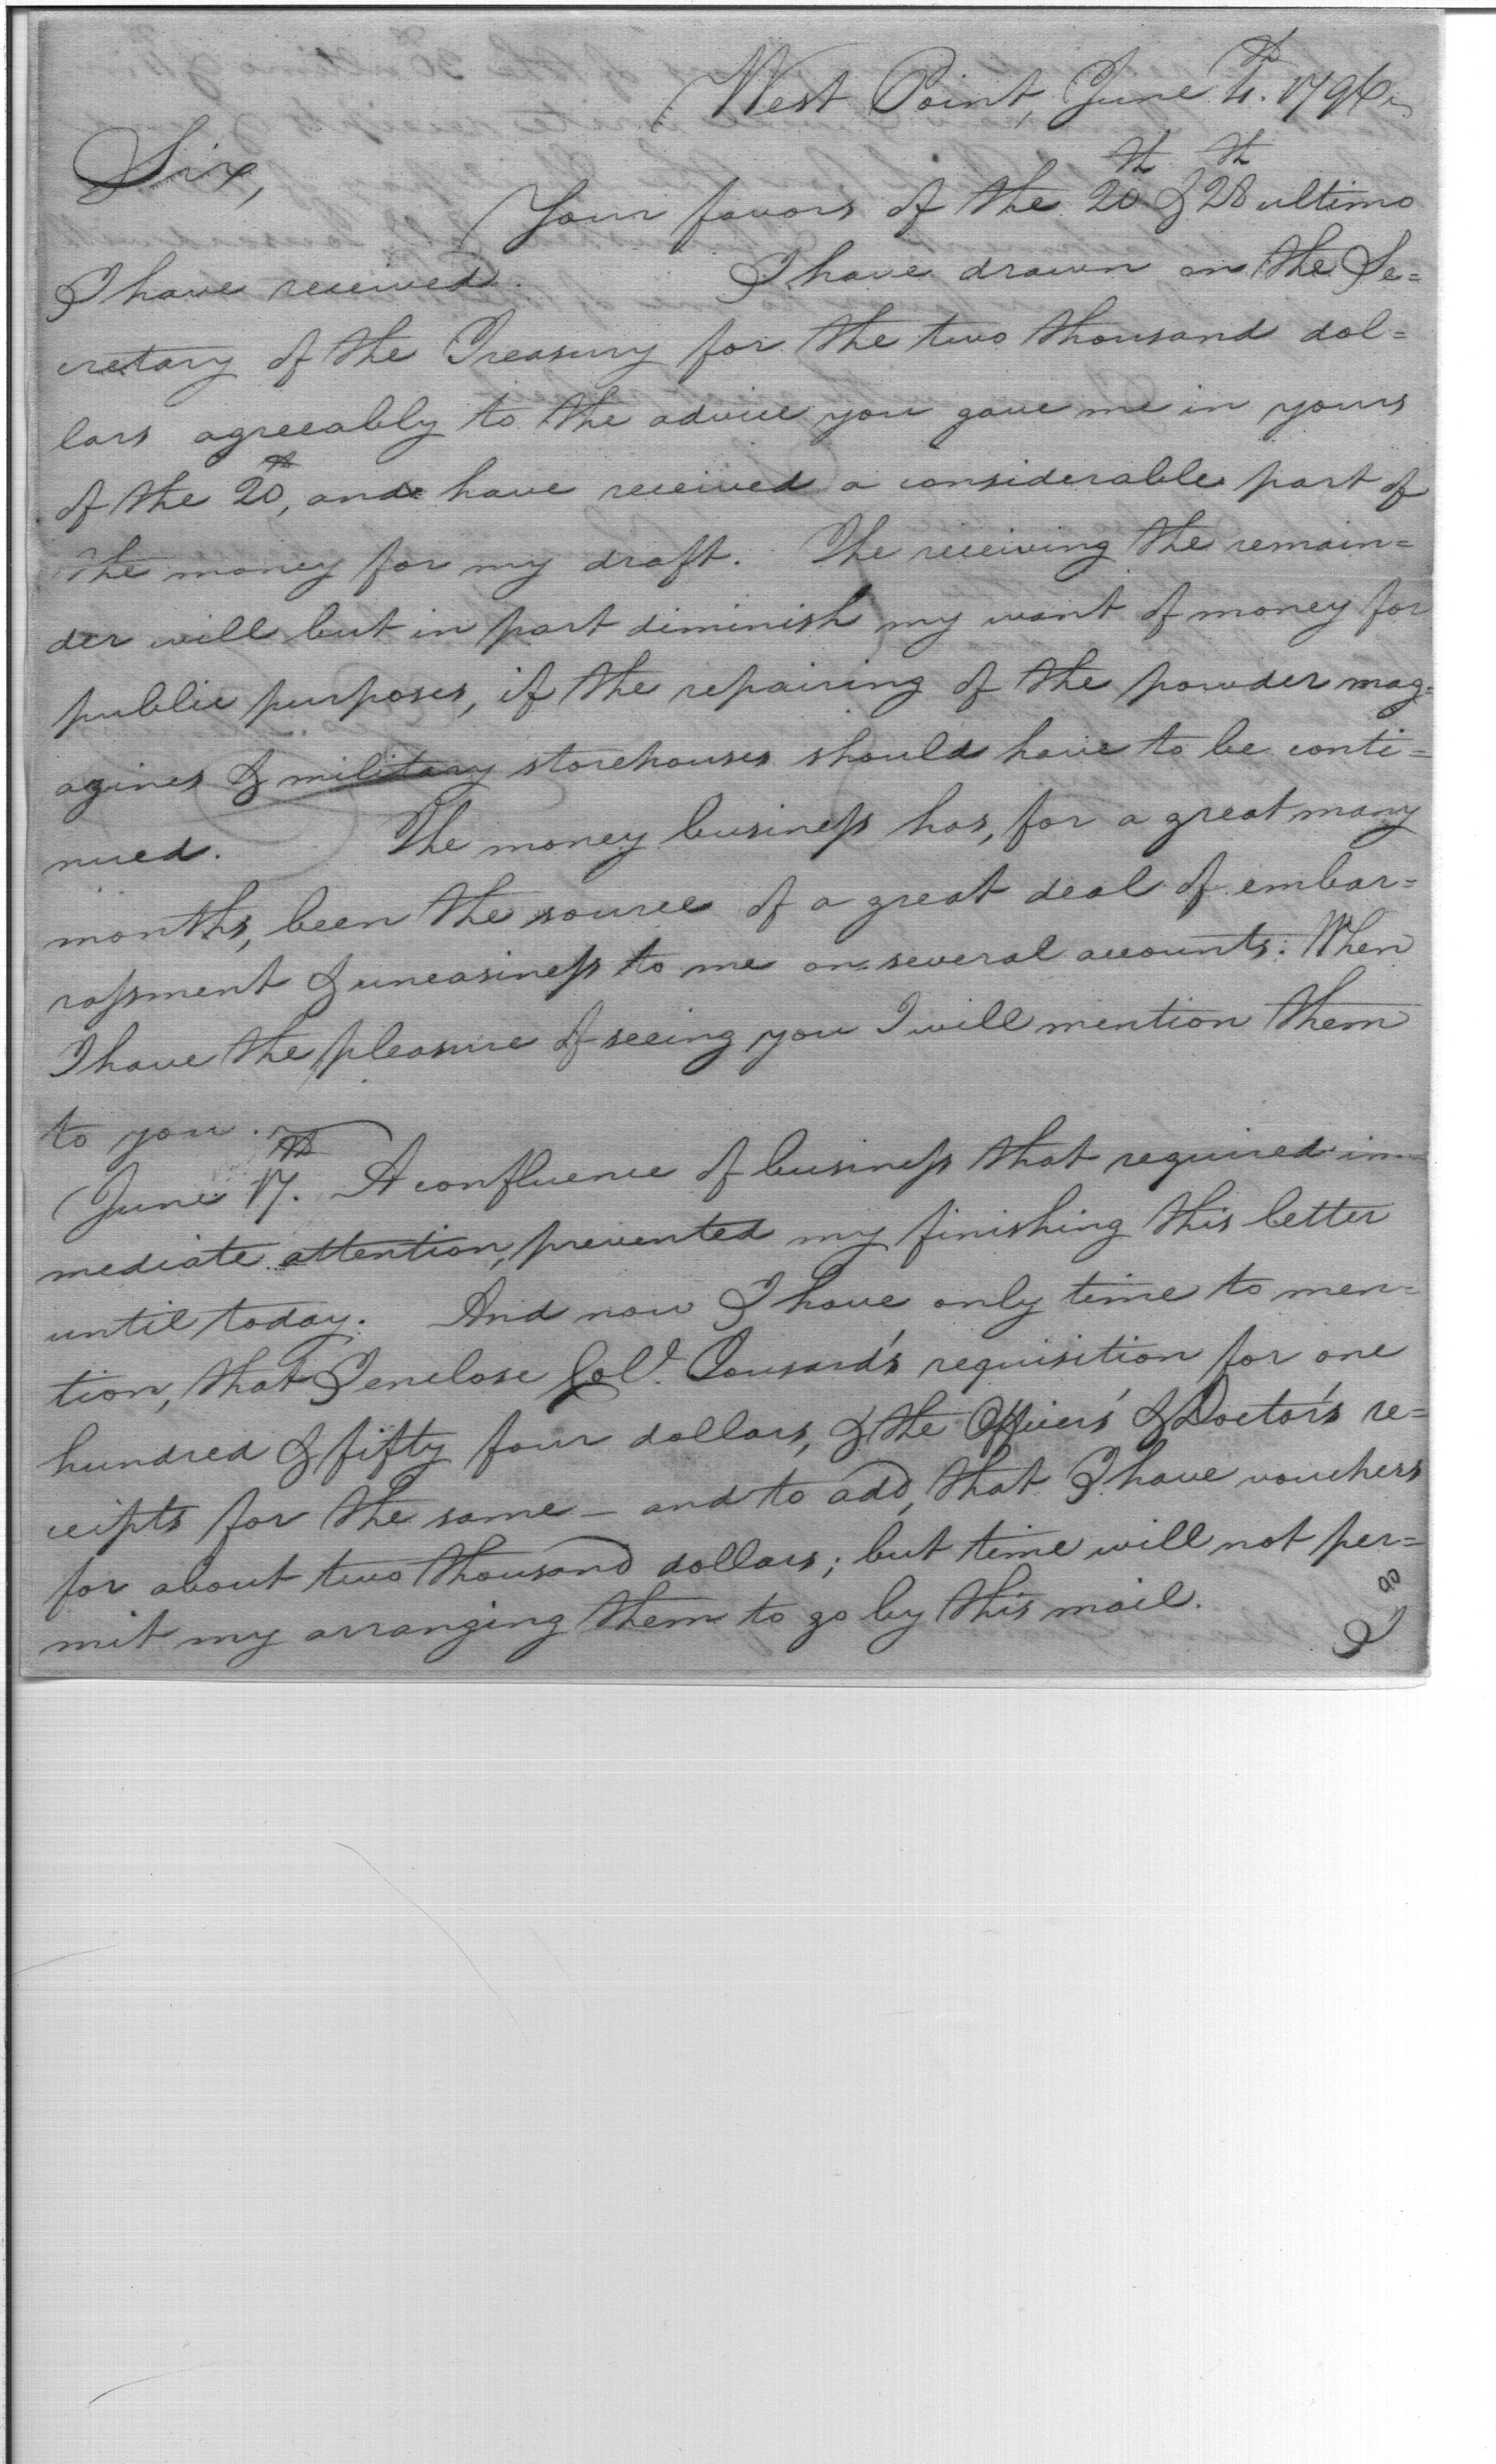 West Point, June 4th. 1796.
Sir,
Your favors of the 20th & 28th ultimo
I have received. I have drawn on the Se=
cretary of the Treasury for the two thousand dol=
lars agreeably to the advice you gave me in yours
of the 20th, and have received a considerable part of
the money for my draft. The receiving the remain=
der will but in part diminish my want of money for
public purposes, if the repairing of the powder mag=
azines & military storehouses should have to be conti=
nued. The money business has, for a great many
months, been the source of a great deal of embar=
rassment & uneasiness to me on several accounts: When
I have the pleasure of seeing you I will mention them
to you.
June 17th. A confluence of business that required im=
mediate attention, prevented my finishing this letter
until today. And now I have only time to men=
tion, that I enclose Col. requisition for one
hundred & fifty four dollars, & the Officers' & Doctor's re=
ceipts for the same - and to add, that I have vouchers
for about two thousand dollars; but time will not per=
mit my arranging them to go by this mail.